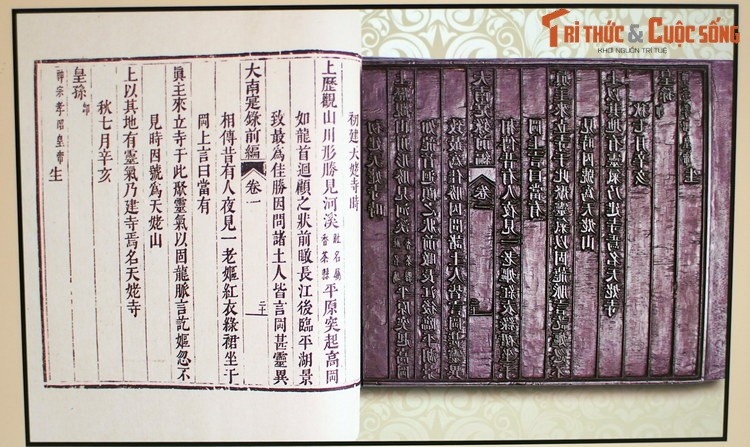 TRI THỨC & CUỘC SỐNG
KHƠI NGUỒN TRI TUỆ
初建天姥寺時
上歷觀山川形勝見河溪社名屬香茶縣平原突起高岡
如龍首迴顧之狀前瞰長江後臨平湖景
致最為佳勝因問諸土人皆言岡甚靈異
大南寔錄前編 卷一 二十
相傳昔有人夜見一老嫗紅衣綠裙坐于
岡上言曰當有
眞主來立寺于此聚靈氣以固龍脈言訖嫗忽不
見時因號為天姥山
上以其地有靈氣乃建寺焉名天姥寺
秋七月辛亥
皇孫卽神宗孝昭皇帝生